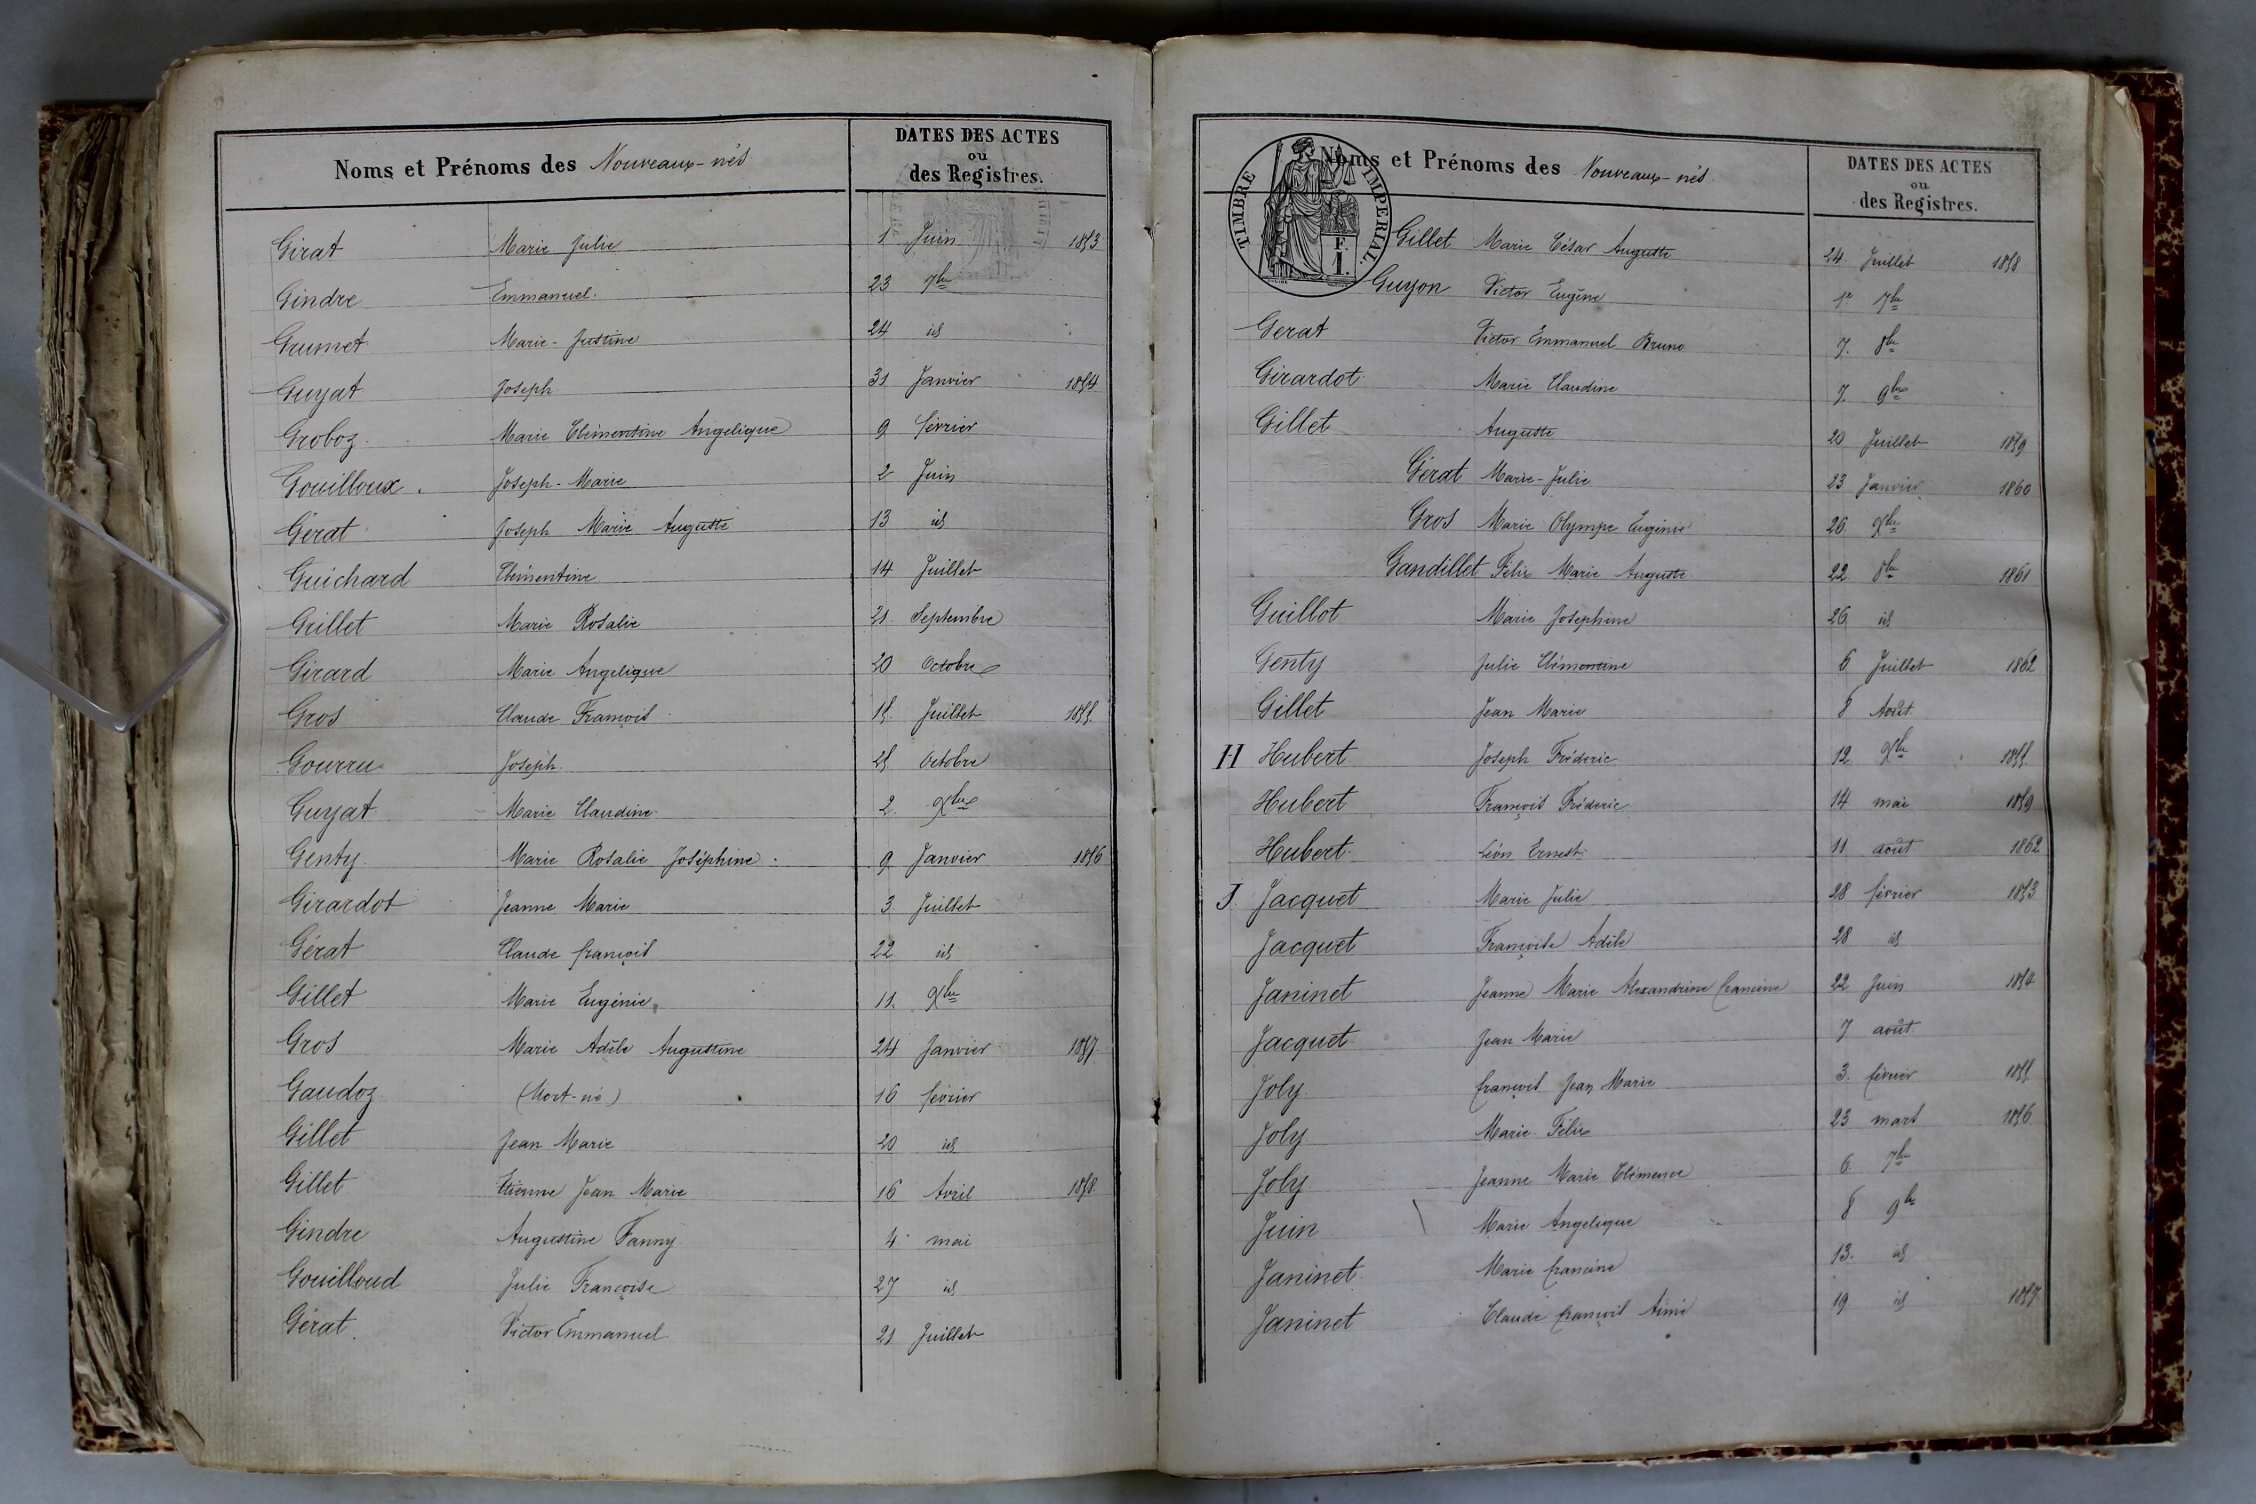 Noms et Prénoms des Nouveaux-nés
DATES DES ACTES
ou
des Registres.
Girat Marie Julie 1 Juin 1853
Gindre Emmanuel. 23 7bre
Grumet Marie-Justine 24 id
Guyat Joseph 31 Janvier 1854
Groboz Marie Clémentine Angelique 9 février
Gouilloux Joseph-Marie 2 Juin
Gérat Joseph Marie Auguste 13 id
Guichard Clémentine 14 Juillet
Grillet Marie Rosalie 21 Septembre
Girard Marie Angelique 20 Octobre
Gros Claude François 15 Juillet 1855
Gourru Joseph 25 Octobre
Guyat Marie Claudine 2 Xbre
Genty Marie Rosalie Joséphine 9 Janvier 1856
Girardot Jeanne Marie 3 Juillet
Gérat Claude françois 22 id
Gillet Marie Eugénie 11 Xbre
Gros Marie Adèle Augustine 24 Janvier 1857
Gaudoz (Mort-né) 16 février
Gillet Jean Marie 20 id
Gillet Etienne Jean Marie 16 Avril 1858
Gindre Augustine Fanny 4 mai
Gouilloud Julie Françoise 27 id
Gérat Victor Emmanuel 21 Juillet
TIMBRE IMPERIAL.
F.
1.
Noms et Prénoms des Nouveaux-nés
DATES DES ACTES
ou
des Registres.
Gillet Marie César Auguste 24 Juillet 1858
Guyon Victor Eugène 1er 7bre
Gerat Victor Emmanuel Bruno 7 8bre
Girardot Marie Claudine 7 9bre
Gillet Auguste 20 Juillet 1859
Gérat Marie-Julie 23 Janvier 1860
Gros Marie Olympe Eugénie 26 Xbre
Gandillet Félix Marie Auguste 22 8bre 1861
Guillot Marie Josephine 26 id
Genty Julie Clémentine 6 Juillet 1862
Gillet Jean Marie 8 Août
H Hubert Joseph Fréderic 12 Xbre 1855
Hubert François Fréderic 14 mai 1859
Hubert Léon Ernest 11 août 1862
J. Jacquet Marie Julie 28 février 1853
Jacquet Françoise Adèle 28 id
Janinet Jeanne Marie Alexandrine francine 22 Juin 1854
Jacquet Jean Marie 7 août
Joly françois Jean Marie 3. février 1855
Joly Marie Félix 23 mars 1856
Joly Jeanne Marie Clémence 6 7bre
Juin Marie Angelique 8 9bre
Janinet Marie francine 13. id
Janinet Claude françois Aimé 19 id 1857